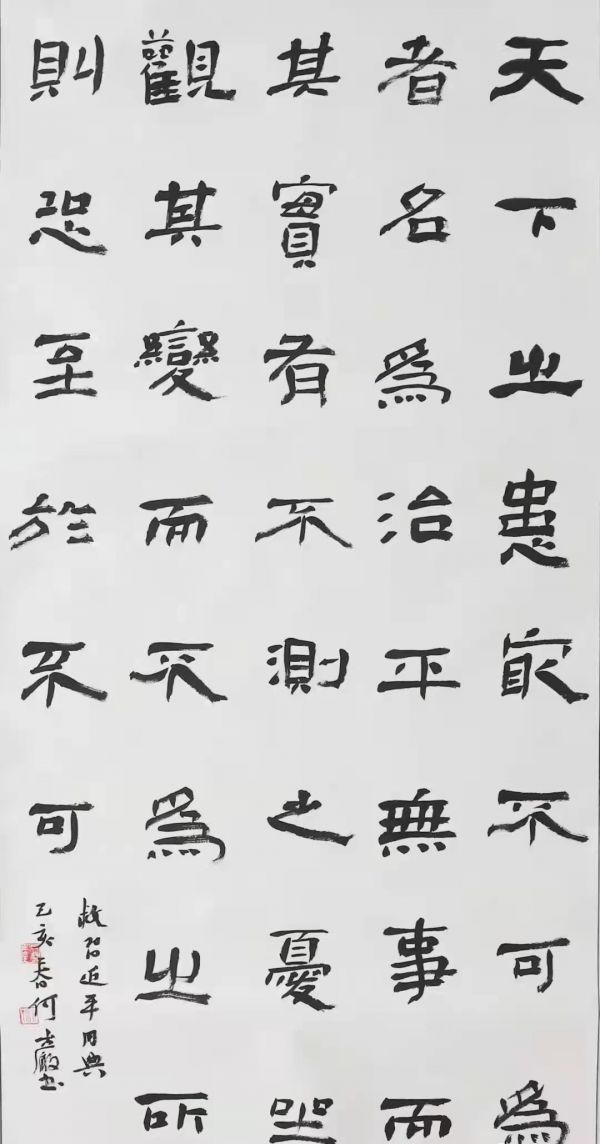 天下之患最不可為
者名為治平無事而
其實有不測之憂坐
觀其變而不為之所
則恐至於不可
習近平用典
乙亥春何書